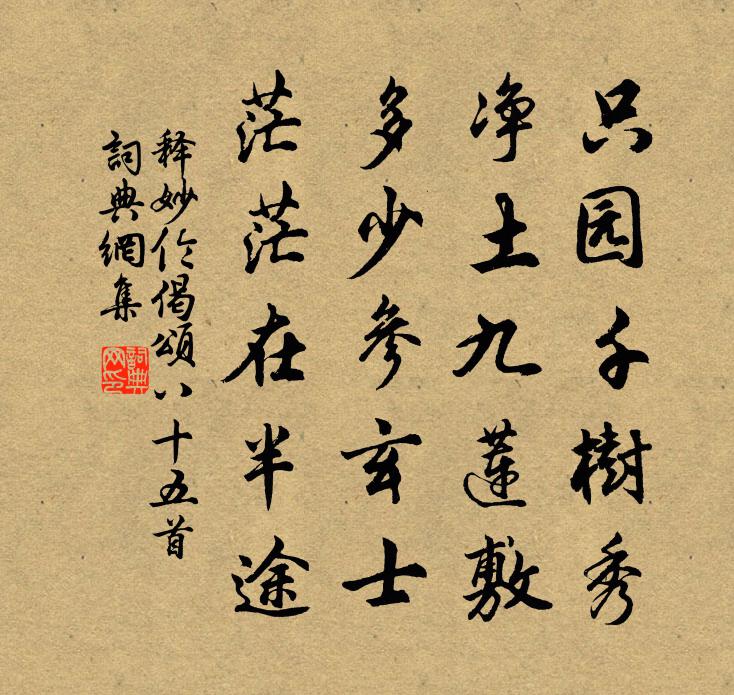 只园千樹秀
净土九蓮敷
多少參玄士
茫茫在半途
释妙伦偈頌八十五首
詞典網集
詞典网印